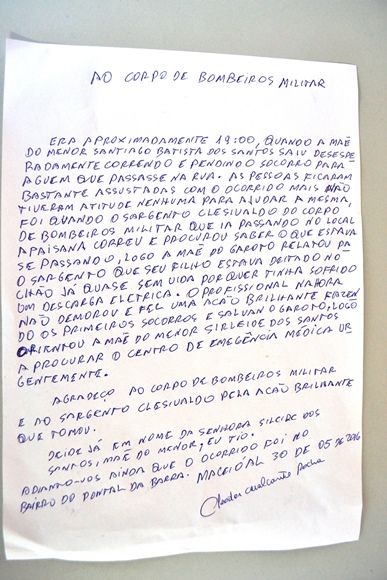 AO CORPO DE BOMBEIROS MILITAR
ERA APROXIMADAMENTE 19:00, QUANDO A MÃE
DO MENOR SANTIAGO BATISTA DOS SANTOS SAIU DESESPE
RADAMENTE CORRENDO E PENDINO O SOCORRO PARA
AGUEM QUE PASSASSE NA RUA. AS PESSOAS FICARAM
BASTANTE ASSUSTADAS COM O OCORRIDO MAIS NÃO
TIVERAM ATITUDE NENHUMA PARA AJUDAR A MESMA,
FOI QUANDO O SARGENTO CLESIVALDO DO CORPO
DE BOMBEIROS MILITAR QUE IA PASSANDO NO LOCAL
APAISANA CORREU E PROCUROU SABER O QUE ESTAVA
SE PASSANDO, LOGO A MÃE DO GAROTO RELATOU PA
O SARGENTO QUE SEU FILHO ESTAVA DEITADO NO
CHÃO JÁ QUASE SEM VIDA POR QUER TINHA SOFRIDO
UM DESCARGA ELETRICA. O PROFISSIONAL NA HORA
NÃO DEMOROU E FEZ UMA ACÃO BRILHANTE FAZEN
DO OS PRIMEIROS SOCORROS E SALVAN O GAROTO, LOGO
ORIENTOU A MÃE DO MENOR SIRLEIDE DOS SANTOS
A PROCURAR O CENTRO DE EMEGÊNCIA MÉDICA UR
GENTEMENTE.
AGRADEÇO AO CORPO DE BOMBEIROS MILITAR
E AO SARGENTO CLESIVALDO PELA ACÃO BRILHANTE
QUE TOMOU.
DEIDE JÁ EM NOME DA SENHORA SILEIDE DOS
SANTOS, MÃE DO MENOR, EU TIO.
ADIANTO-VOS AINDA QUE O OCORRIDO FOI NO
BAIRRO DO PONTAL DA BARRA. MACEIÓ/AL 30 DE 05 DE 2016
Cavalcante Rocha